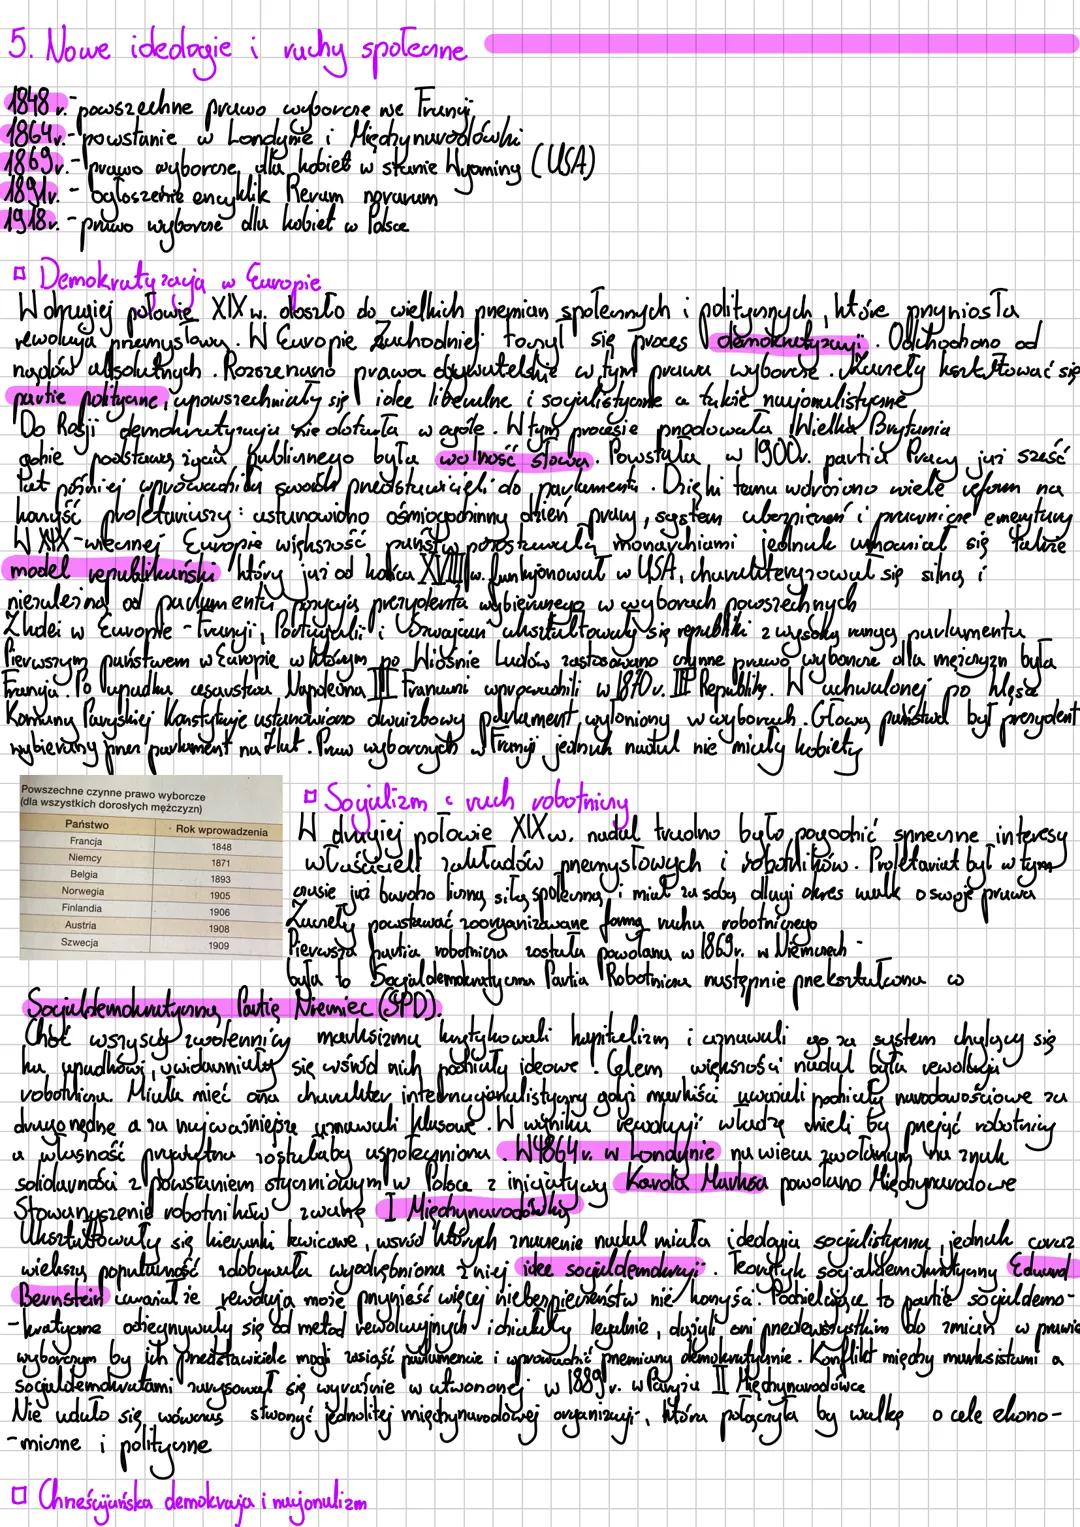 5. Nowe ideologie i ruchy społeczne
1848 r. - powszechne prawo wyborcze we Francji
1864r. - powstanie w Londynie i Międzynarodówki
1869r. - prawo wyborcze dla kobiet w stanie Wyoming (USA)
1891r. - ogłoszenie encyklik Rerum novarum
1918r. - prawo wyborcze dla kobiet w Polsce
Demokratyzacja w Europie
W drugiej połowie XIX w. doszło do wielkich przemian społecznych i politycznych, które przyniosła
rewolucja przemysłowa. W Europie Zachodniej toczył się proces demokratyzacji. Odchodzono od
rządów absolutnych. Rozszerzano prawa obywatelskie w tym prawa wyborcze. Zaczęły kształtować się
partie polityczne, upowszechniały się idee liberalne i socjalistyczne a także nacjonalistyczne
Do Rosji demokratyzacja nie dotarła w ogóle. W tym procesie przodowała Wielka Brytania
gdzie podstawą życia publicznego była wolność słowa. Powstała w 1900r. partia Pracy już sześć
lat później wprowadziła swoich przedstawicieli do parlamentu. Dzięki temu wdrożono wiele reform na
korzyść proletariuszy: ustanowiono ośmiogodzinny dzień pracy, system ubezpieczeń i prawnicze emerytury
W XIX-wiecznej Europie większość państw pozostawała monarchiami jednak umacniał się także
model republikański który już od końca XVIII w. funkcjonował w USA, charakteryzował się silną i
niezależną od parlamentu pozycją prezydenta wybieranego w wyborach powszechnych
Z kolei w Europie - Francji, Portugalii i Szwajcarii ukształtowały się republiki z wysoką rangą parlamentu
Pierwszym państwem w Europie w którym po Wiośnie Ludów zastosowano czynne prawo wyborcze dla mężczyzn była
Francja. Po upadku cesarstwa Napoleona III Francuzi wprowadzili w 1870r. III Republikę. W uchwalonej po klęsce
Komuny Paryskiej Konstytucje ustanowiono dwuizbowy parlament wyłoniony w wyborach. Głową państwa był prezydent
wybierany przez parlament na 7 lat. Praw wyborczych w Francji jednak nadal nie miały kobiety
Powszechne czynne prawo wyborcze
(dla wszystkich dorosłych mężczyzn)
Państwo Rok wprowadzenia
Francja 1848
Niemcy 1871
Belgia 1893
Norwegia 1905
Finlandia 1906
Austria 1908
Szwecja 1909
Socjalizm i ruch robotniczy
W drugiej połowie XIX w. nadal trudno było pogodzić sprzeczne interesy
właścicieli zakładów przemysłowych i robotników. Proletariat był w tym
czasie już bardzo liczną siłą społeczną i miał za sobą długi okres walk o swoje prawa
Zaczęły powstawać zoorganizowane formą ruchu robotniczego
Pierwsza partia robotnicza została powołana w 1869r. w Niemczech -
była to Socjaldemokratyczna Partia Robotnicza następnie przekształcona w
Socjaldemokratyczną Partię Niemiec (SPD).
Choć wszyscy zwolennicy marksizmu krytykowali kapitalizm i uznawali go za system chylący się
ku upadkowi, uwidaczniały się wśród nich podziały ideowe! Celem większości nadal była rewolucja
robotnicza. Miała mieć ona charakter internacjonalistyczny gdyż marksiści uważali podziały narodowościowe za
drugorzędne a za najważniejsze uznawali klasowe. W wyniku rewolucji władzę mieli by przejąć robotnicy
a własność prywatna zostałaby uspołeczniona W 1864r. w Londynie na wiecu zwołanym na znak
solidarności z powstaniem styczniowym w Polsce z inicjatywy Karola Marksa powołano Międzynarodowe
Stowarzyszenie robotników zwane I Międzynarodówką
Ukształtowały się kierunki lewicowe, wśród których znaczenie nadal miała ideologia socjalistyczna, jednak coraz
większą popularność zdobywała wyodrębniona z niej idee socjaldemokracji. Teoretyk socjaldemokratyczny Eduard
Bernstein uważał że rewolucja może przynieść więcej niebezpieczeństw niż korzyści. Podzielające to partie socjaldemo-
-kratyczne odżegnywały się od metod rewolucyjnych i działały legalnie, dążyli oni przedewszystkim do zmian w prawie
wyborczym by ich przedstawiciele mogli zasiąść parlamencie i wprowadzić przemiany demokratycznie. Konflikt między marksistami a
socjaldemokratami zarysował się wyraźnie w utworzonej w 1889r. w Paryżu II Międzynarodówce
Nie udało się wówczas stworzyć jednolitej międzynarodowej organizacji, która połączyła by walkę o cele ekono-
-miczne i polityczne
Chrześcijańska demokracja i nacjonalizm